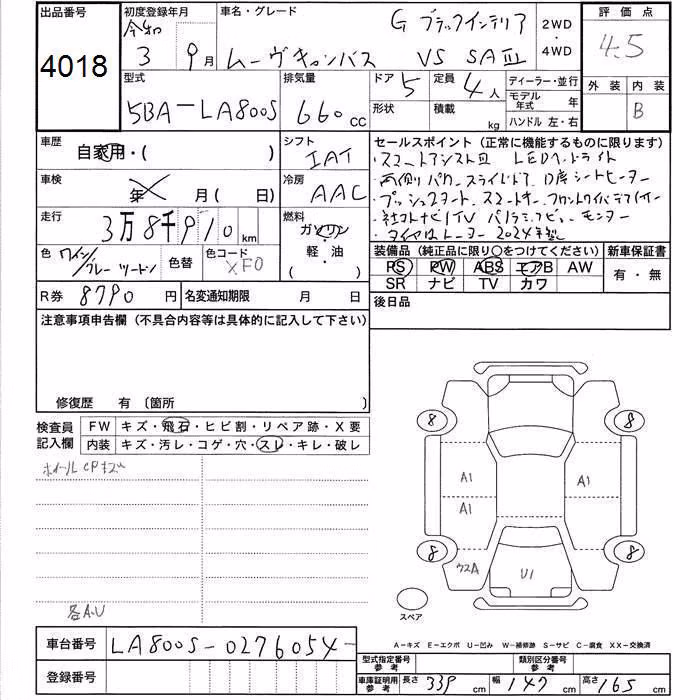 出品番号
4018
初度登録年月
令和
3 9月
車名・グレード
G ブラックインテリア
ムーヴキャンバス VS SAⅢ
2WD
・
4WD
評価点
4.5
外装 内装
B
型式
5BA-LA800S
排気量
660 cc
ドア 5
定員 4人
形状
積載 kg
ディーラー・並行
モデル年式 年
ハンドル 左・右
車歴
自家用・( )
シフト
IAT
車検
年 月( 日)
冷房
AAC
走行
3万8千910 km
燃料
ガソリン
・
軽・油
( )
色 ワイン/グレー ツートン
色替
色コード
XF0
R券 8790 円
名変通知期限 月 日
セールスポイント(正常に機能するものに限ります)
・スマートアシストⅢ LEDヘッドライト
・両側パワースライドドア D席シートヒーター
・プッシュスタート スマートキー フロントワイパーデアイサー
・社外ナビ/TV パノラミックビューモニター
2024年製
装備品(純正品に限り〇をつけてください)
PS PW ABS エアB AW
SR ナビ TV カワ
新車保証書
有・無
後日品
注意事項申告欄(不具合内容等は具体的に記入して下さい)
修復歴 有 〔箇所 〕
検査員
記入欄
FW キズ・飛石・ヒビ割・リペア跡・X要
内装 キズ・汚レ・コゲ・穴・スレ・キレ・破レ
ホイールCPキズ
各A.U
8 8
A1 A1
A1
8 8
ウスA U1
スペア
A-キズ E-エクボ U-凹み W-補修跡 S-サビ C-腐食 XX-交換済
車台番号 LA800S-0276054-
登録番号
型式指定番号
参考
類別区分番号
参考
車庫証明用
参考
長さ 339 cm 幅 147 cm 高さ 165 cm